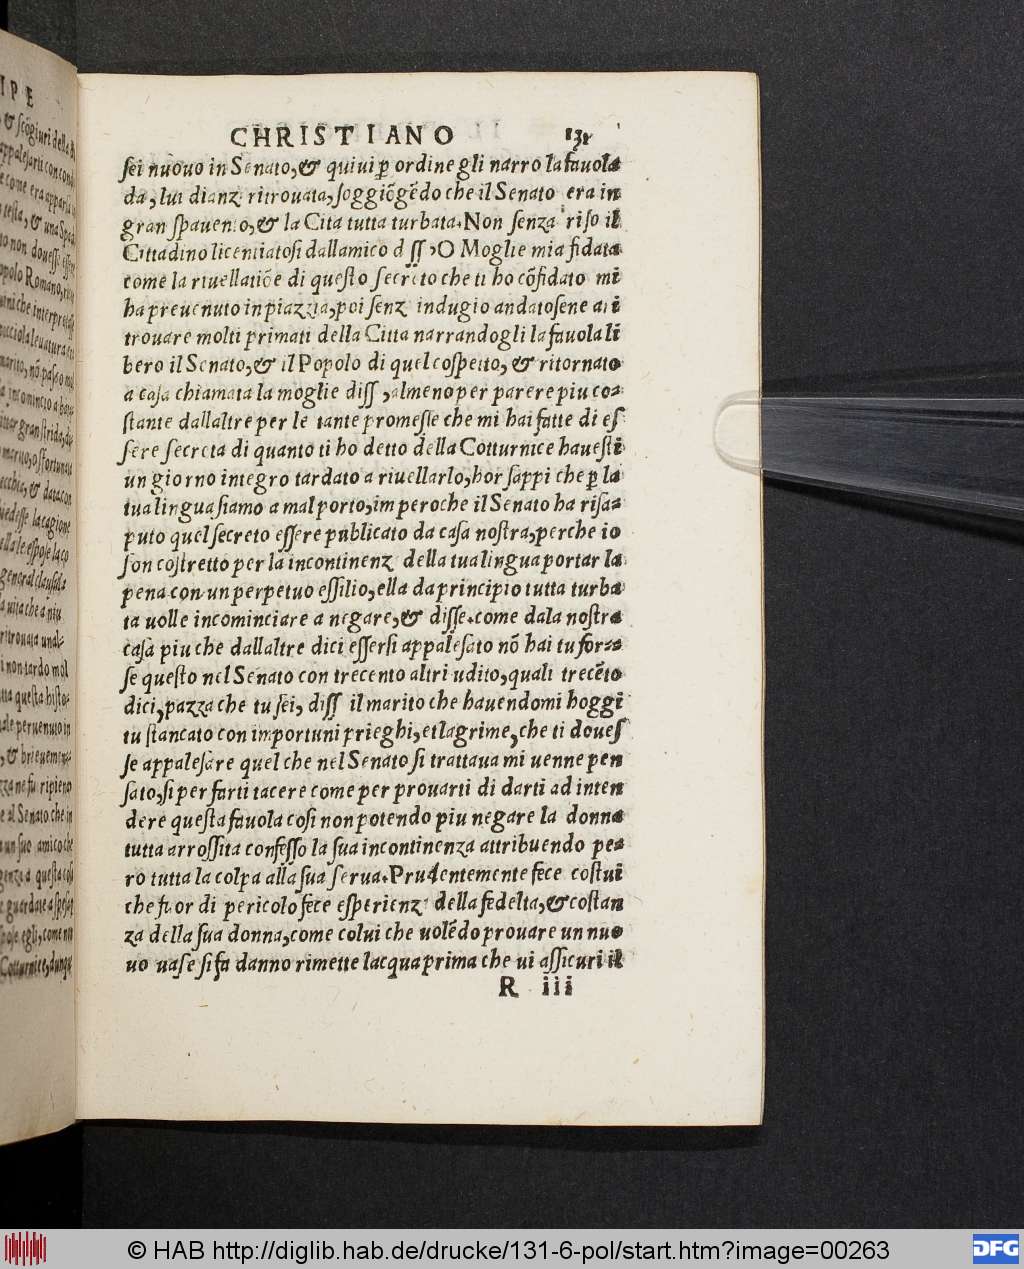 CHRISTIANO 131
sei nuovo in Senato, & quivi ꝑ ordine gli narro la favola
da, lui dianz ritrovata, soggiõgẽdo che il Senato era in
gran spavento, & la Cita tutta turbata. Non senza riso il
Cittadino licentiatosi dallamico d ss, O Moglie mia fidata
come la rivellatiõe di questo secreto che ti ho cõfidato mi
ha prevenuto in piazzia, poi senz indugio andatosene a i
trovare molti primati della Citta narrandogli la favola lĩ
bero il Senato, & il Popolo di quel cospetto, & ritornato
a casa chiamata la moglie diss, almeno per parere piu co-
stante dallaltre per le tante promesse che mi hai fatte di es
sere secreta di quanto ti ho detto della Cotturnice havesti
un giorno integro tardato a rivellarlo, hor sappi che ꝑ la
tua lingua siamo a mal porto, imperoche il Senato ha risa-
puto quel secreto essere publicato da casa nostra, perche io
son costretto per la incontinenz della tua lingua portar la
pena con un perpetuo essilio, ella da principio tutta turba
ta uolle incominciare a negare, & disse. come dala nostra
casa piu che dallaltre dici essersi appalesato nõ hai tu for-
se questo nel Senato con trecento altri udito, quali trecẽto
dici, pazza che tu sei, diss il marito che havendomi hoggi
tu stancato con importuni prieghi, et lagrime, che ti doves
se appalesare quel che nel Senato si trattava mi uenne pen
sato, si per farti tacere come per provarti di darti ad inten
dere questa favola cosi non potendo piu negare la donna
tutta arrossita confesso la sua incontinenza attribuendo pe-
ro tutta la colpa alla sua serva. Prudentemente fece costui
che fuor di pericolo fece esperienz della fedelta, & costan
za della sua donna, come colui che uolẽdo provare un nuo
vo uase si fa danno rimette lacqua prima che ui assicuri il
R iii
IPE
© HAB http://diglib.hab.de/drucke/131-6-pol/start.htm?image=00263
DFG